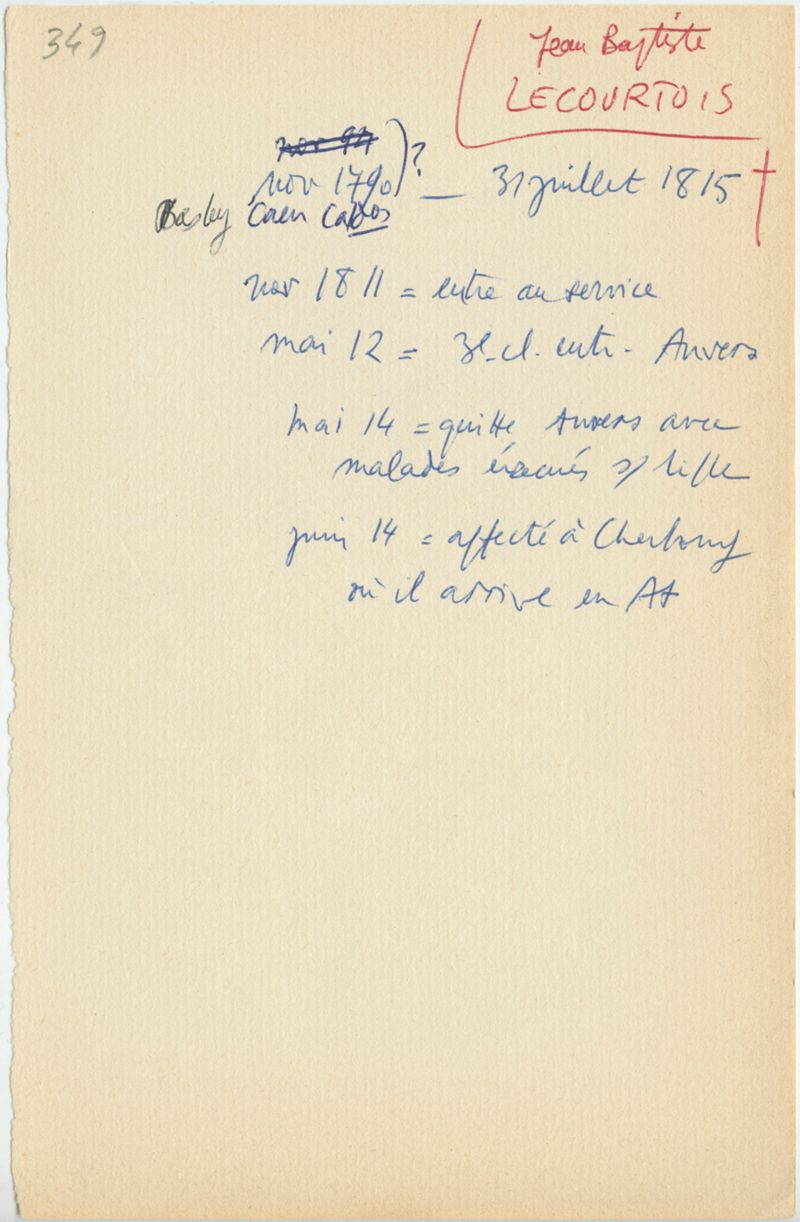 349
Jean Baptiste
LECOURTOIS
nov 1790 )? — 31 juillet 1815 †
Basly Caen
nov 1811 = entre au service
mai 12 = 3e cl. entr. Anvers
mai 14 = quitte Anvers avec
malades évacués s/ Lille
juin 14 = affecté à Cherbourg
où il arrive en At